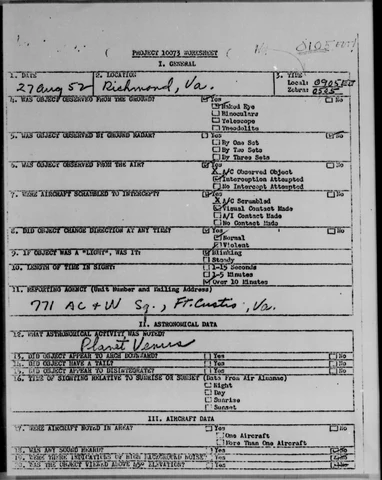 PROJECT 10073 WORKSHEET
I. GENERAL
1. DATE
27 Aug 52
2. LOCATION
Richmond, Va.
3. TIME
Local:
Zebra: 0525
4. WAS OBJECT OBSERVED FROM THE GROUND? Yes No
Naked Eye
Binoculars
Telescope
Theodolite
5. WAS OBJECT OBSERVED BY GROUND RADAR? Yes No
By One Set
By Two Sets
By Three Sets
6. WAS OBJECT OBSERVED FROM THE AIR? Yes No
X A/C Observed Object
Interception Attempted
No Intercept Attempted
7. WERE AIRCRAFT SCRAMBLED TO INTERCEPT? Yes No
X A/C Scrambled
Visual Contact Made
A/I Contact Made
No Contact Made
8. DID OBJECT CHANGE DIRECTION AT ANY TIME? Yes No
Normal
Violent
9. IF OBJECT WAS A "LIGHT", WAS IT: Blinking
Steady
10. LENGTH OF TIME IN SIGHT: 1-15 Seconds
1-5 Minutes
Over 10 Minutes
11. REPORTING AGENCY (Unit Number and Mailing Address)
771 AC & W Sq., Ft. Custis, Va.
II. ASTRONOMICAL DATA
12. WHAT ASTRONOMICAL ACTIVITY WAS NOTED?
Planet Venus
13. DID OBJECT APPEAR TO ARCH DOWNWARD? Yes No
14. DID OBJECT HAVE A TAIL? Yes No
15. DID OBJECT APPEAR TO DISINTEGRATE? Yes No
16. TIME OF SIGHTING RELATIVE TO SUNRISE OR SUNSET (Data From Air Almanac)
Night
Day
Sunrise
Sunset
III. AIRCRAFT DATA
17. WERE AIRCRAFT NOTED IN AREA? Yes No
One Aircraft
More Than One Aircraft
18. WAS ANY SOUND HEARD? Yes No
19. WERE THERE INDICATIONS OF HIGH BACKGROUND NOISE? Yes No
20. WAS THE OBJECT VIEWED ABOVE 45° ELEVATION? Yes No